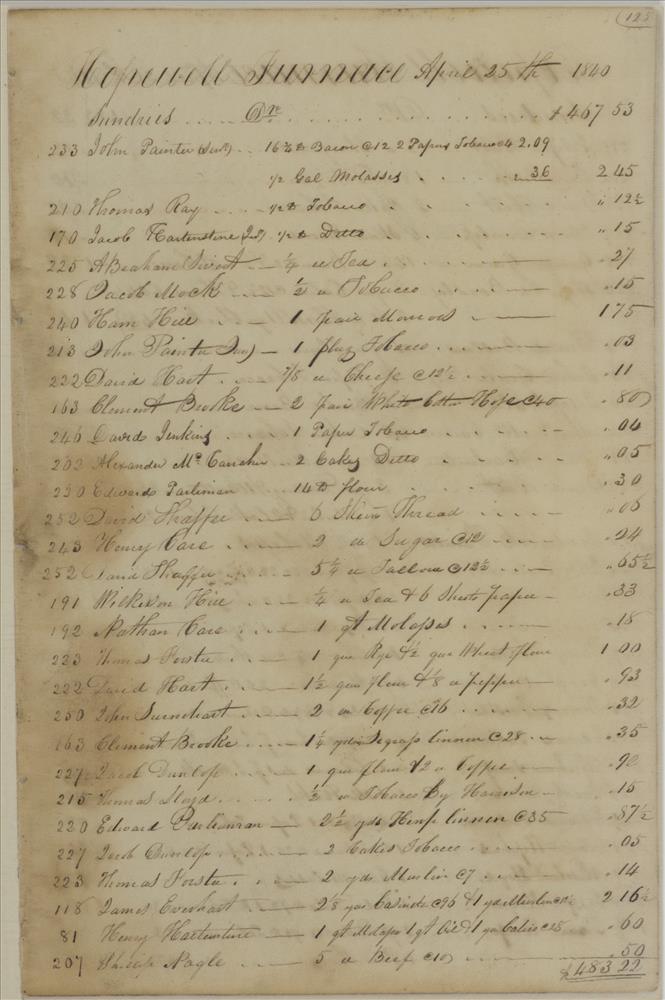 125
Hopewell Furnace April 25th 1840
Sundries Dr. $467 53
233 John Painter (Senr) 16¾ lb Bacon @12 2 Papers Tobacco @4 2.09
½ Gal Molasses 36 2 45
210 Thomas Ray ½ lb Tobacco " 12½
170 Jacob Hartenstine (Jr) ½ lb Ditto " 15
225 Abraham ¼ " Tea " 27
228 Jacob Mock ½ " Tobacco " 15
240 Ham Hill 1 pair 1 75
213 John Painter Jun 1 plug Tobacco " 03
222 David Hart 7/8 " Cheese @12½ " 11
163 Clement Brooke 2 pair White Cotton Hose @40 " 80
246 David Jenkins 1 Paper Tobacco " 04
202 Alexander Mc 2 Cakes Ditto " 05
220 Edward Parliman 14 lb flour " 30
252 David Shaffer 6 Skeins Thread " 06
243 Henry Care 2 " Sugar @12 " 24
252 David Shaffer 5¼ " Tallow @12½ " 65½
191 Wilkison Hill ¼ " Tea & 6 Sheets paper " 33
192 Nathan Care 1 qt Molasses " 18
223 Thomas Forster 1 qur Rye & ½ qur Wheat flour 1 00
222 David Hart 1½ qur flour & ⅛ " pepper " 93
250 John 2 " Coffee @16 " 32
163 Clement Brooke 1¼ yds linnen @28 " 35
227 Jacob Dunlop 1 qur flour & 2 " Coffee " 92
215 Thomas Lloyd ½ " Tobacco By Harrison " 15
220 Edward Parliman 2½ yds Hemp linnen @35 " 87½
227 Jacob Dunlop 2 Cakes Tobacco " 05
223 Thomas Forster 2 yds Muslin @7 " 14
118 James Everhart yds & 1 yd Muslin 2 16½
81 Henry Hartenstine 1 qt Molasses 1 qt Oil & 1 yd Calico @25 " 60
207 Philip Nagle 5 " Beef @10 " 50
$483 22